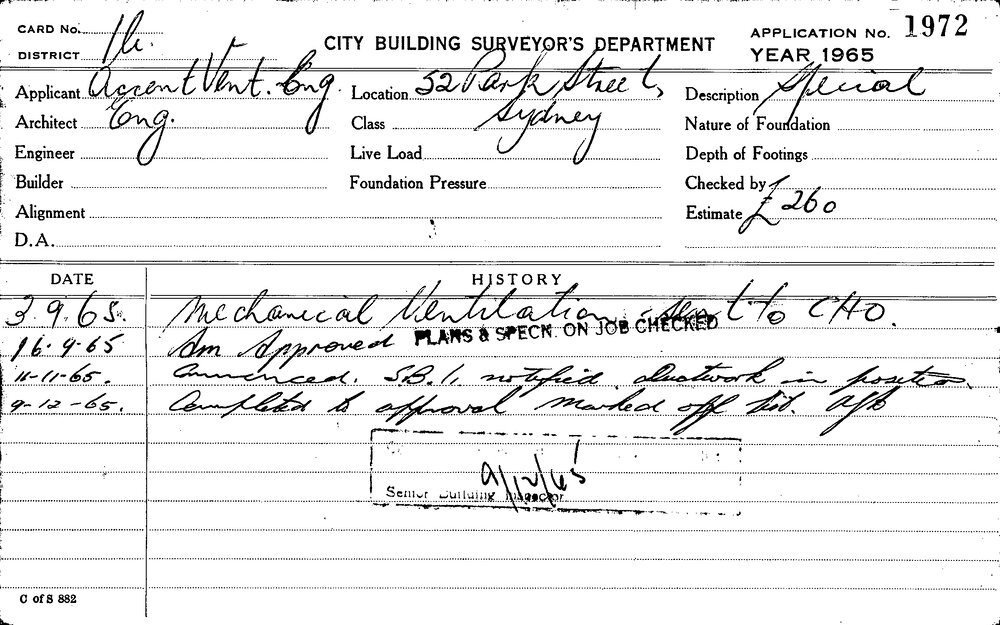 CARD No. 
DISTRICT
CITY BUILDING SURVEYOR'S DEPARTMENT
APPLICATION No. 1972
YEAR 1965
Applicant Accent Vent. Eng.
Location 52 Park Street,
Description Special
Architect Eng.
Class Sydney
Nature of Foundation
Engineer
Live Load
Depth of Footings
Builder
Foundation Pressure
Checked by
Alignment
Estimate £260
D.A.
DATE HISTORY
3.9.65. Mechanical Ventilation sent to CHO.
16.9.65 Am Approved PLANS & SPECN. ON JOB CHECKED
11-11-65. Commenced. S.B.I. notified. Ductwork in position.
9-12-65. Completed to approval marked off list.
9/12/65
Senior Building Inspector
C of S 882